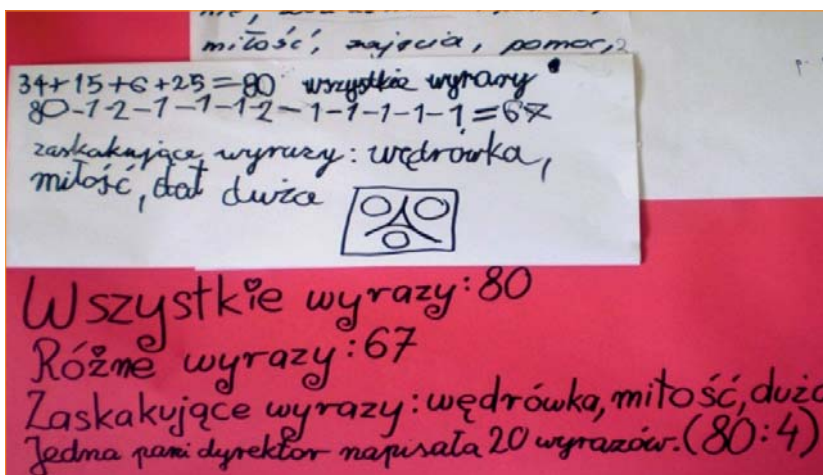 miłość, zajęcia, pomoc,
34+15+6+25=80 wszystkie wyrazy
80-1-2-1-1-1-2-1-1-1-1-1=67
zaskakujące wyrazy: wędrówka,
miłość, dał duża
Wszystkie wyrazy: 80
Różne wyrazy: 67
Zaskakujące wyrazy: wędrówka, miłość, duża
Jedna pani dyrektor napisała 20 wyrazów. (80:4)